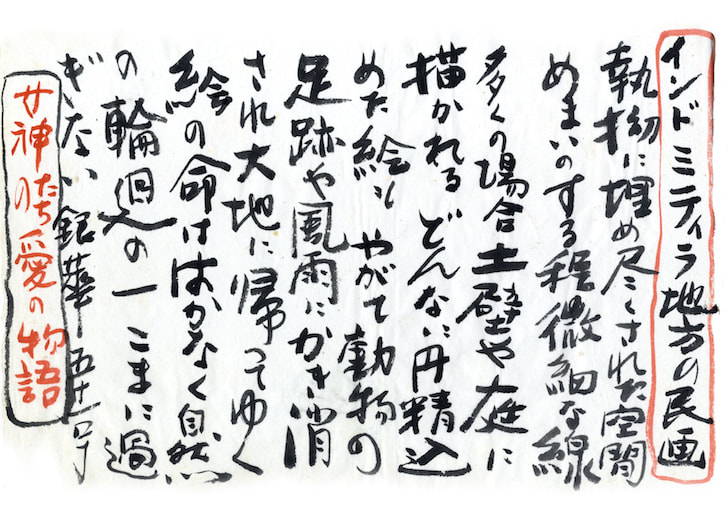 インド ミティラ地方の民画
執拗に埋め尽くされた空間
めまいのする程微細な線
多くの場合土壁や庭に
描かれる どんなに丹精込
めた絵も やがて動物の
足跡や風雨にかき消
され大地に帰ってゆく
絵の命ははかなく自然
の輪廻の一こまに過
ぎない 銀華 五十一号
女神たちの愛の物語